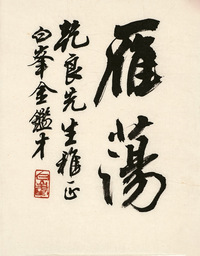 雁蕩
乾良先生雅正
白峯金鑑才